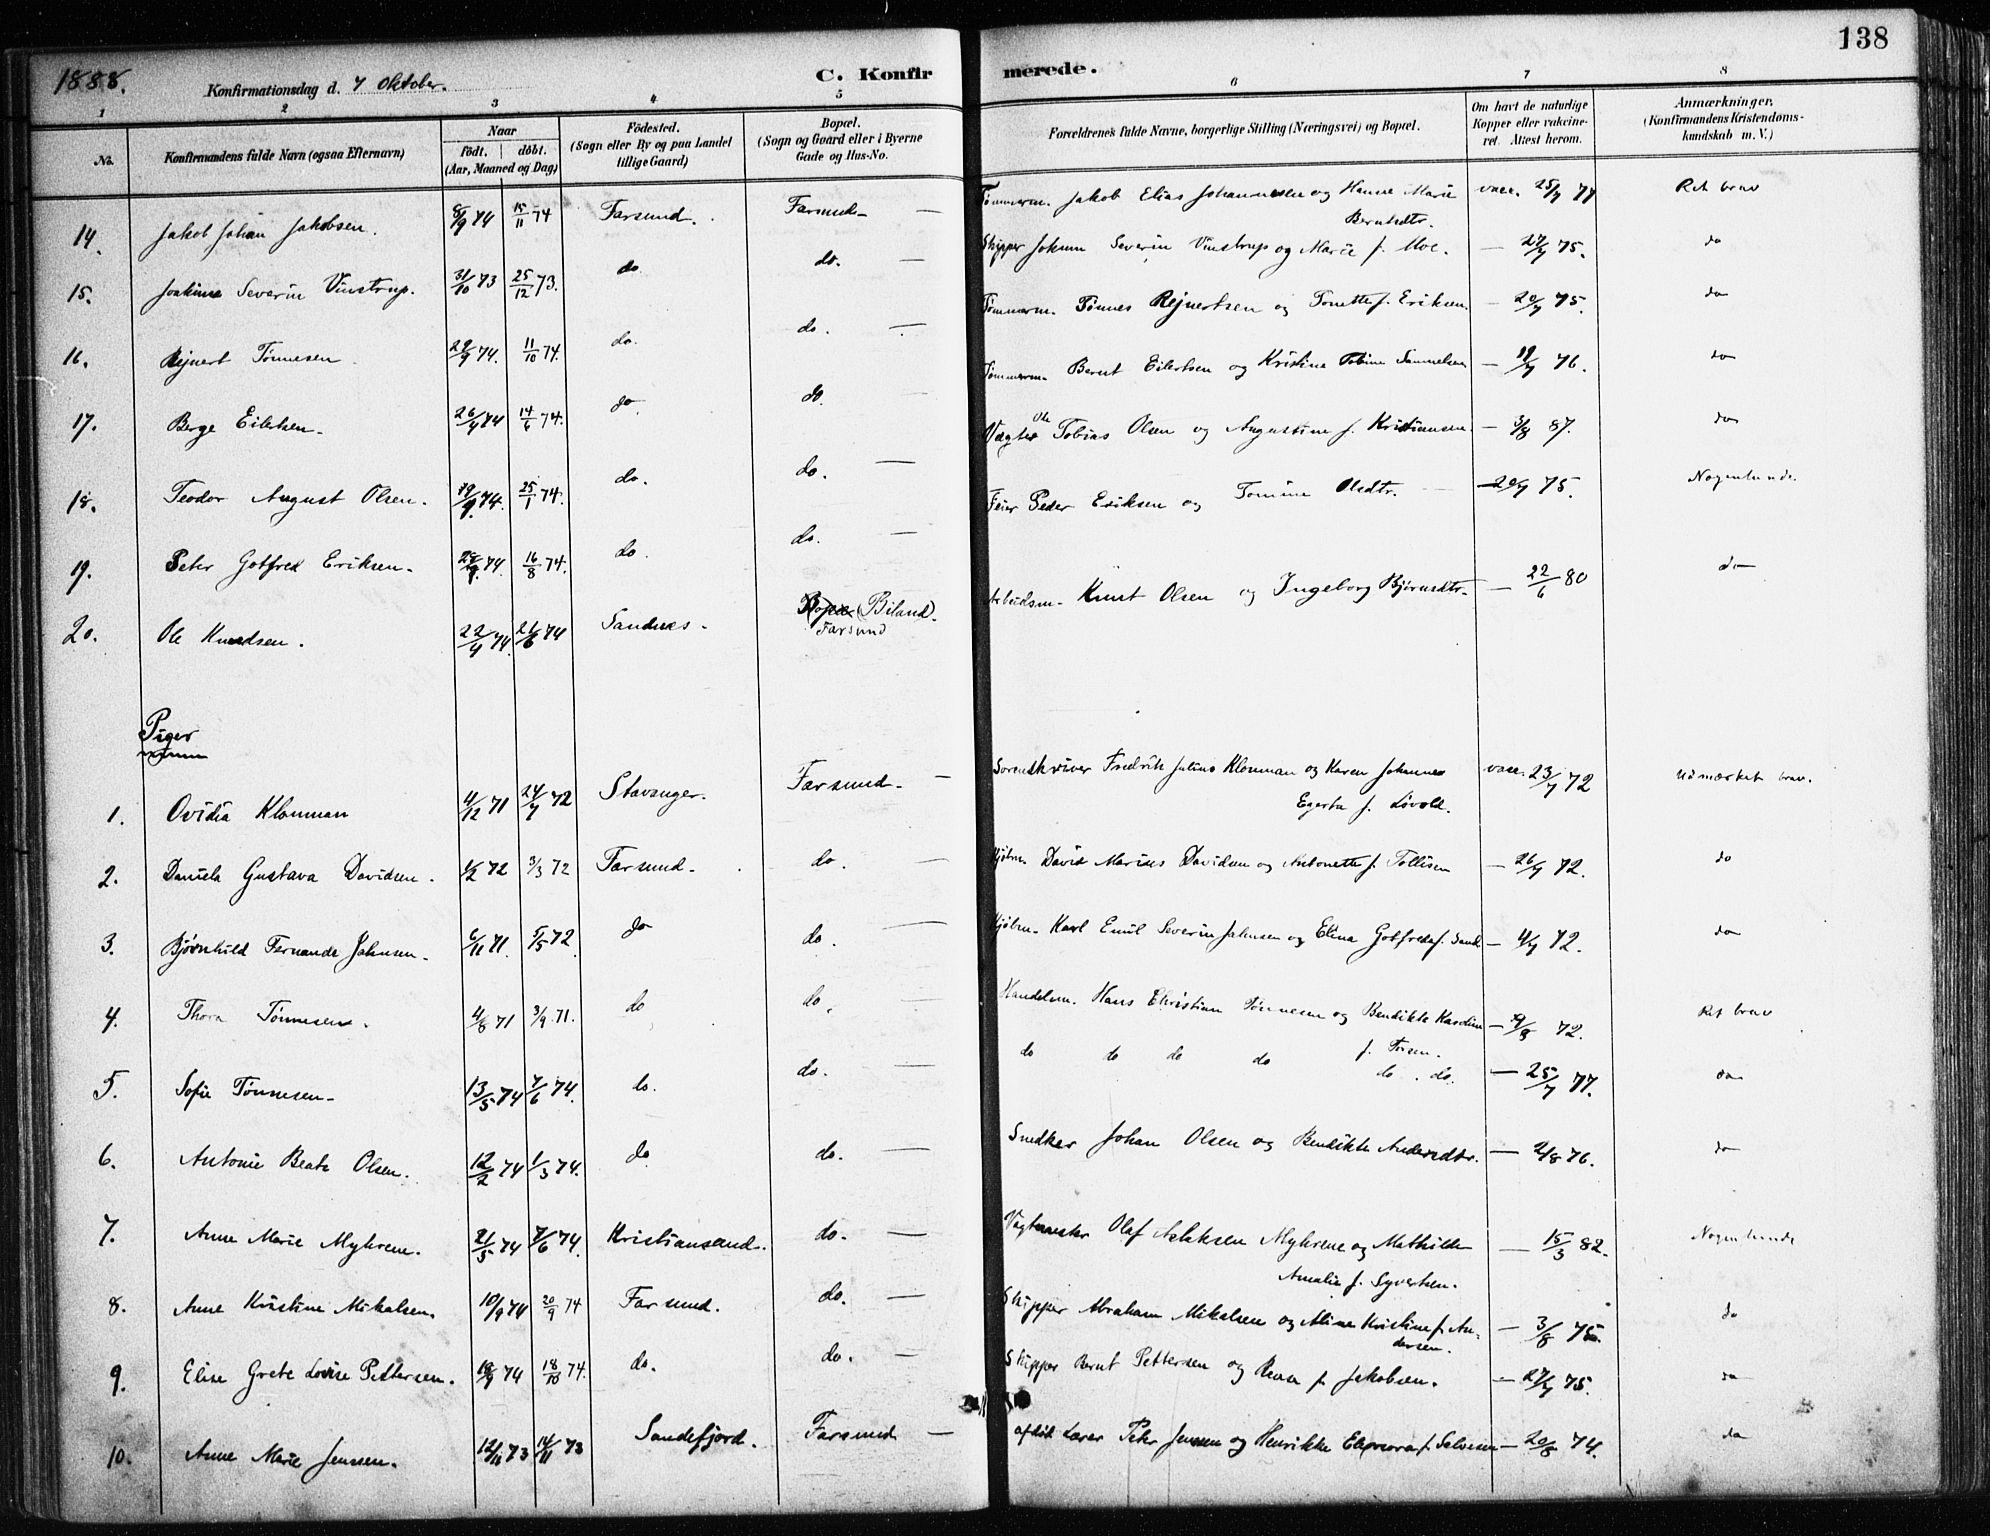 138
1888. Konfirmationsdag d. 7 Oktober. C. Konfirmerede.
1 2 3 4 5 6 7 8
No. Konfirmandens fulde Navn (ogsaa Efternavn) Naar födt. döbt. (Aar, Maaned og Dag) Födested. (Sogn eller By og paa Landet tillige Gaard) Bopæl. (Sogn og Gaard eller i Byerne Gade og Hus-No. Forældrenes fulde Navne, borgerlige Stilling (Næringsvei) og Bopæl. Om havt de naturlige Kopper eller vakcineret. Attest herom. Anmærkninger, (Konfirmandens Kristendomskundskab m. V.)
14. Jakob Johan Jakobsen. 8/9 74 15/11 74 Farsund. Farsund — Tømmerm. Jakob Elias Johannesen og Hanne Marie Berntsdtr. vacc. 25/7 77 Ret brav
15. Joakim Severin Vinstrup. 31/10 73 25/12 73. do. do. — Skipper Jokum Severin Vinstrup og Marie f. Moe. — 27/7 75. do
16. Rejnert Tønnesen 22/9 74. 11/10 74. do. do. — Tømmerm. Tønnes Rejnertsen og Tonette f. Eriksen. — 20/7 75. do
17. Berge Eilertsen. 26/4 74 14/6 74. do do. Tømmerm. Bernt Eilertsen og Kristine Tobine Samuelsen — 19/7 76. do
18. Teodor August Olsen. 74. 25/1 74. do. do. — Vægter Ole Tobias Olsen og Augustine f. Kristiansen. — 3/8 87. do
19. Peter Gotfred Eriksen. 74. 16/8 74. do. do. Feier Peder Eriksen og Tomine Olsdtr. — 20/7 75. Nogenlunde.
20. Ole Knudsen. 22/4 74. 21/6 74 Sandnes. (Biland). Farsund Arbeidsm. Knut Olsen og Ingeborg Bjørnsdtr. — 22/6 80 do
Piger
1. Ovidia Klouman 4/12 71 24/7 72 Stavanger. Farsund. — Sorenskriver Fredrik Julius Klouman og Karen Johanne Egerta f. Løvold. vacc. 23/7 72 Udmærket brav.
2. Daniela Gustava Davidsen. 1/2 72 3/3 72 Farsund. do. — Kjøbm. David Marius Davidsen og Antonette f. Tollisen — 26/7 72. do
3. Bjørnhild Fernanda Jahnsen. 6/11 71. 5/5 72. do do. — Kjøbm. Karl Emil Severin Jahnsen og Elina Gotfreda f. Sand. — 4/7 72. do
4. Thora Tønnesen. 4/8 71 3/9 71. do do. Handelsm. Hans Christian Tønnesen og Bendikte Karoline f. Torsen. — 72. Ret brav
5. Sofie Tønnesen. 13/5 74 7/6 74. do. do. — do do do do do. do. — 25/7 77. do
6. Antonie Beate Olsen. 12/2 74 1/3 74. do do. — Snedker Johan Olsen og Bendikte Andersdtr. — 2/8 76. do
7. Anne Marie Myhrene. 21/5 74 7/6 74. Kristiansand. do. — Vagtmester Olaf Aslaksen Myhrene og Mathilde Amalie f. Syvertsen. — 15/3 82. Nogenlunde
8. Anne Kristine Mikalsen. 10/9 74 20/9 74 Farsund. do. — Skipper Abraham Mikalsen og Aline Kristine f. Andersen. — 3/8 75. do
9. Elise Grete Lovise Pettersen. 19/9 74 18/10 74. do. do. — Skipper Bernt Pettersen og f. Jakobsen. — 27/7 75. do
10. Anne Marie Jenssen. 12/11 73 14/11 73 Sandefjord. Farsund — afdøde Lærer Peter Jenssen og Henrikke Eleonora f. Salvesen — 20/8 74. do